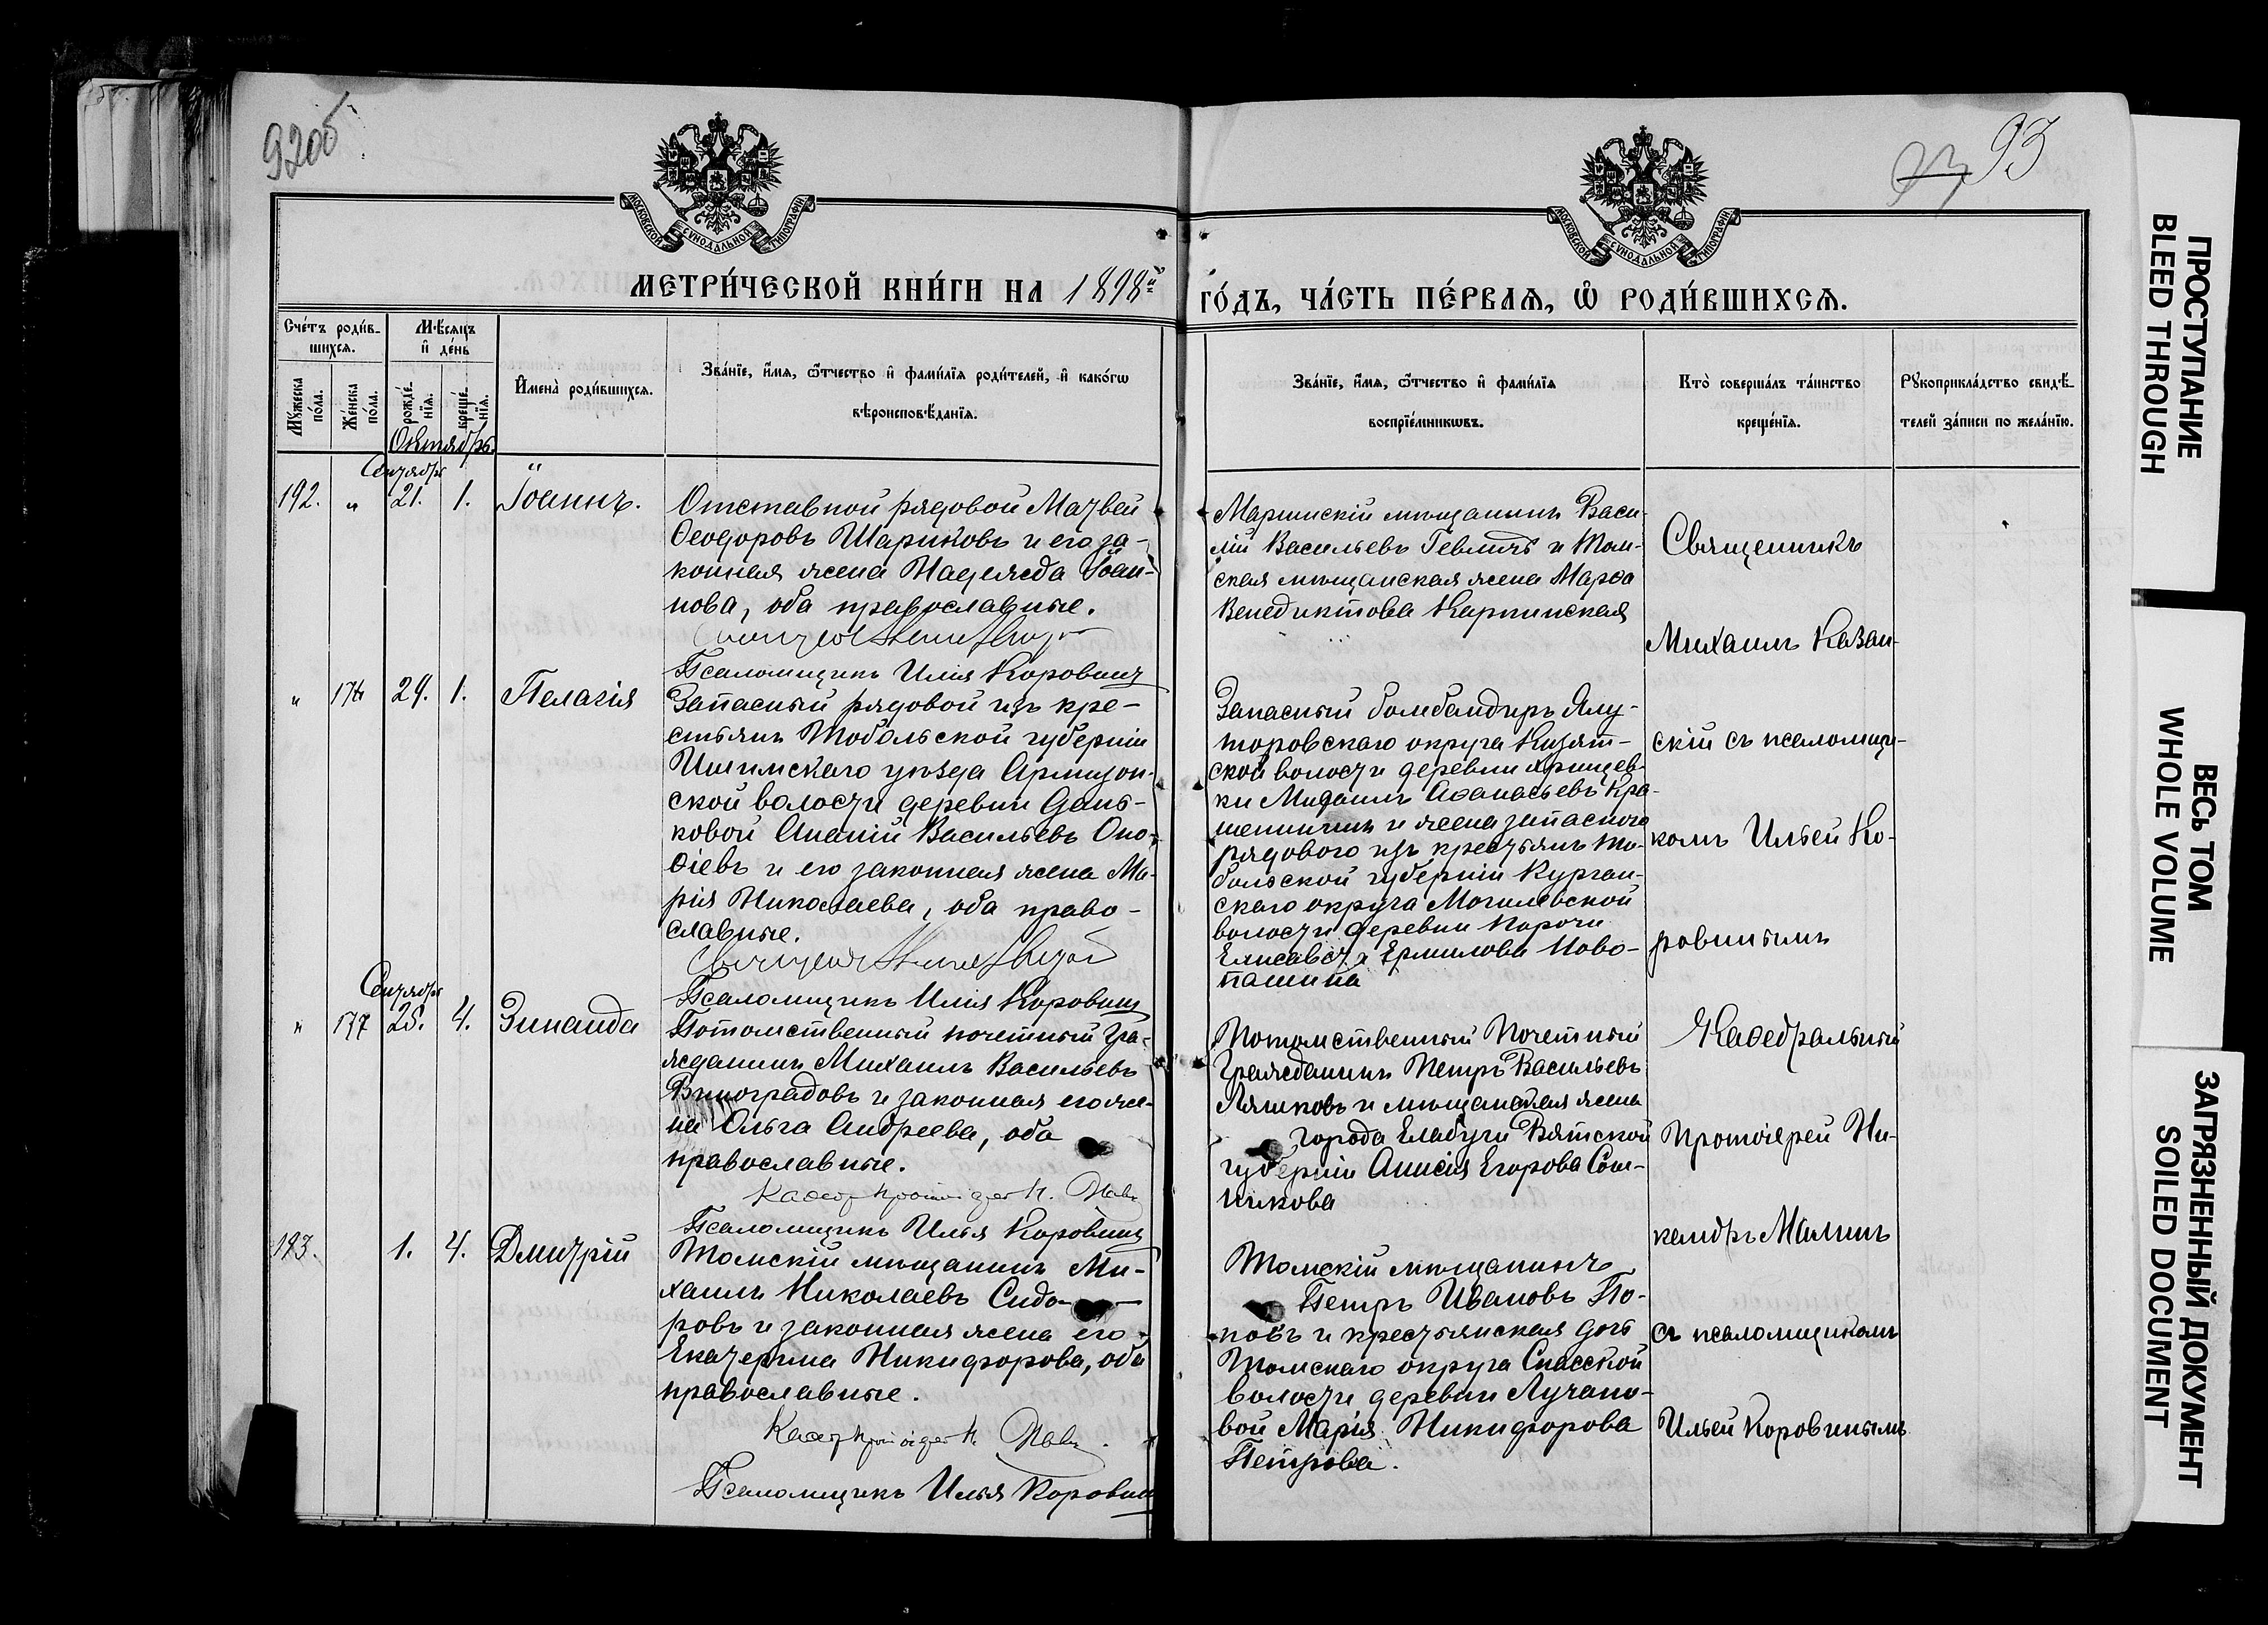 92об
93
МОСКОВСКОЙ СѴНОДАЛЬНОЙ ТИПОГРАФІИ
МОСКОВСКОЙ СѴНОДАЛЬНОЙ ТИПОГРАФІИ
МЕТРИ́ЧЕСКОЙ КНИ́ГИ НА 1898й
ГО́ДЪ, ЧА́СТЬ ПЕ́РВАѦ, Ѿ РОДИ́ВШИХСѦ.
Счётъ роди́в-
шихсѧ.
Мѣ́сѧцъ
и҆ де́нь
Мꙋ́жеска
по́ла.
Же́нска
по́ла.
рожде́-
нїѧ.
креще́-
нїѧ.
И҆мена̀ роди́вшихсѧ.
Зва́нїе, и҆́мѧ, ѻ҆́тчество и҆ фами́лїѧ роди́телей, и҆ како́гѡ
вѣроисповѣ́данїѧ.
Зва́нїе, и҆́мѧ, ѻ҆́тчество и҆ фами́лїѧ
воспрїе́мникѡвъ.
Кто̀ соверша́лъ та́инство
креще́нїѧ.
Рꙋкоприкла́дство свидѣ́-
телей за́писи по жела́нїю.
Октябрь
Сентябрь
192. " 21. 1. Іоаннъ.
Отставной рядовой Матвей
Ѳеодоровъ Шариковъ и его за-
конная жена Надежда Іоан-
нова, оба православные.
Псаломщикъ Илія Коровинъ
Маріинскій мѣщанинъ Васи-
лій Васильевъ Гевличъ и Том-
ская мѣщанская жена Марѳа
Венедиктова Карпинская
Священникъ
Михаилъ Казан-
скій съ псаломщи-
комъ Ильей Ко-
ровинымъ
" 176 29. 1. Пелагія
Запасный рядовой изъ кре-
стьянъ Тобольской губерніи
Ишимскаго уѣзда Армизон-
ской волости деревни Дань-
ковой Ананій Васильевъ Оно-
фіевъ и его законная жена Ма-
рія Николаева, оба право-
славные.
Псаломщикъ Илія Коровинъ
Запасный бомбандиръ Ялу-
торовскаго округа Кизят-
ской волости деревни Хрищев-
ки Михаилъ Аѳанасьевъ Кра-
шенинин и жена запаснаго
рядового изъ крестьянъ То-
больской губерніи Курган-
скаго округа Могилевской
волости деревни Нарочи
Елисавета Ермилова Ново-
пашина
Сентябрь
" 177 25. 4. Зинаида
Потомственный почетный гра-
жданинъ Михаилъ Васильевъ
Виноградовъ и законная его же-
на Ольга Андреева, оба
православные.
Псаломщикъ Илья Коровинъ
Потомственный Почетный
Гражданинъ Петръ Васильевъ
Ляшковъ и мѣщанская жена
города Елабуги Вятской
губерніи Анисія Егорова Сот-
никова
Каѳедральный
Протоіерей Ни-
кандръ Малинъ
съ псаломщикомъ
Ильей Коровинымъ
193. 1. 4. Дмитрій
Томскій мѣщанинъ Ми-
хаилъ Николаевъ Сидо-
ровъ и законная жена его
Екатерина Никифорова, оба
православные.
Псаломщикъ Илья Коровин
Томскій мѣщанинъ
Петръ Ивановъ По-
повъ и крестьянская дочь
Томскаго округа Спасской
волости деревни Лучано-
вой Марія Никифорова
Петрова.
ПРОСТУПАНИЕ
BLEED THROUGH
ВЕСЬ ТОМ
WHOLE VOLUME
ЗАГРЯЗНЕННЫЙ ДОКУМЕНТ
SOILED DOCUMENT